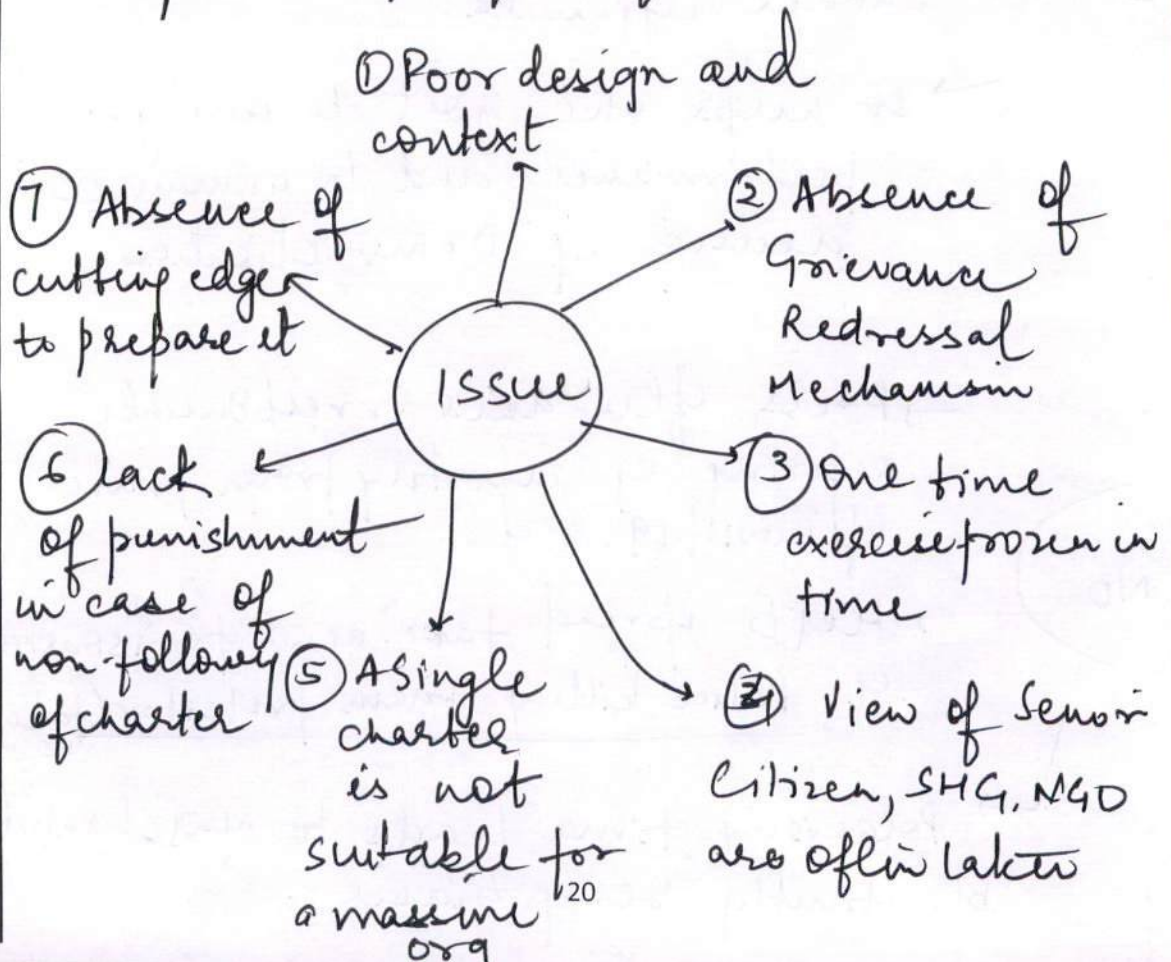 ① Poor design and
context
② Absence of
Grievance
Redressal
Mechanism
③ One time
exercise frozen in
time
④ View of Senior
Citizen, SHG, NGO
are often
⑤ A Single
charter
is not
suitable for
a massive
org
⑥ lack
of punishment
in case of
non-following
of charter
⑦ Absence of
cutting edge
to prepare it
ISSUE
20